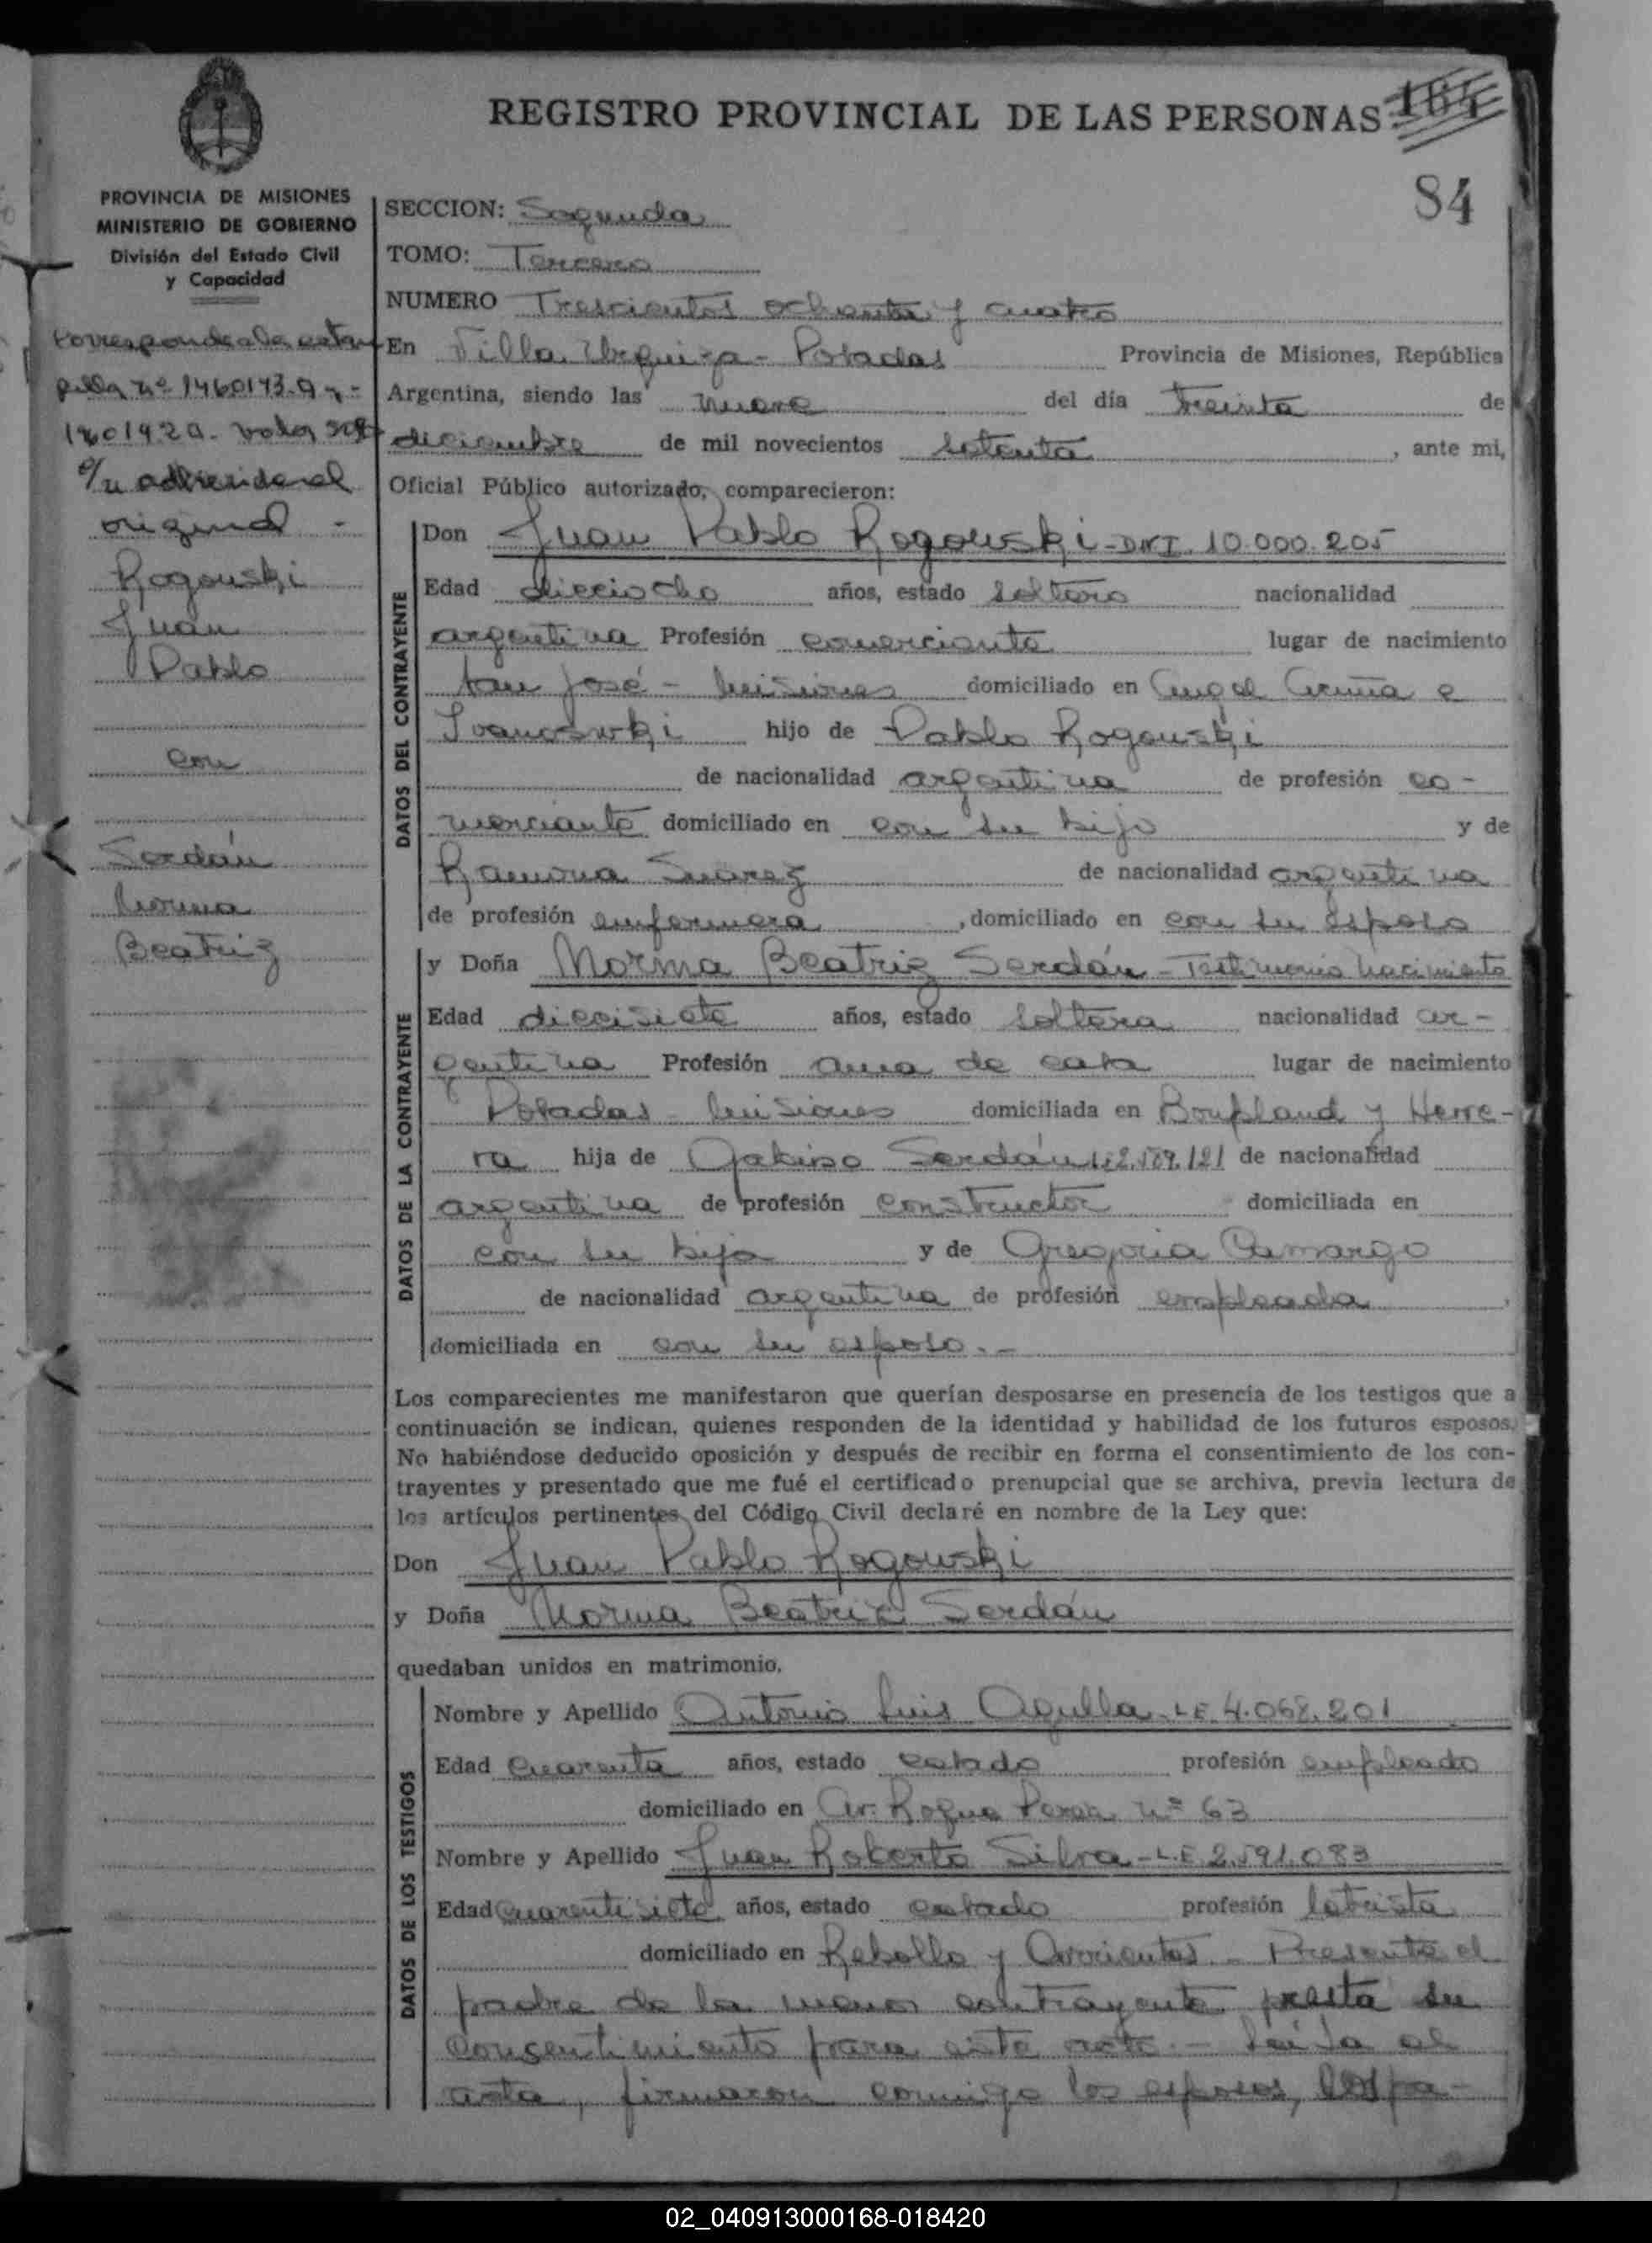 REGISTRO PROVINCIAL DE LAS PERSONAS 164
84
PROVINCIA DE MISIONES
MINISTERIO DE GOBIERNO
División del Estado Civil
y Capacidad
corresponde a la estam
pilla nº 1460173.9
original -
Rogouski
Juan
Pablo
con
Serdán
Norma
Beatriz
SECCION: Segunda
TOMO: Tercero
NUMERO Trescientos ochenta y cuatro
En Villa Urquiza - Posadas Provincia de Misiones, República
Argentina, siendo las nueve del día treinta de
diciembre de mil novecientos setenta, ante mi,
Oficial Público autorizado, comparecieron:
DATOS DEL CONTRAYENTE
Don Juan Pablo Rogowski - DNI. 10.000.205
Edad dieciocho años, estado soltero nacionalidad
argentina Profesión comerciante lugar de nacimiento
San José - Misiones domiciliado en Angel Acuña e
Ivanoswki hijo de Pablo Rogouski
de nacionalidad argentina de profesión co-
merciante domiciliado en con su hijo y de
Ramona Suarez de nacionalidad argentina
de profesión enfermera, domiciliado en con su esposo
DATOS DE LA CONTRAYENTE
y Doña Norma Beatriz Serdán - Testimonio Nacimiento
Edad diecisiete años, estado soltera nacionalidad ar-
gentina Profesión ama de casa lugar de nacimiento
Posadas - Misiones domiciliada en Bonpland y Herre-
ra hija de Serdán de nacionalidad
argentina de profesión constructor domiciliada en
con su hija y de Gregoria Camargo
de nacionalidad argentina de profesión empleada,
domiciliada en con su esposo.-
Los comparecientes me manifestaron que querían desposarse en presencia de los testigos que a
continuación se indican, quienes responden de la identidad y habilidad de los futuros esposos.
No habiéndose deducido oposición y después de recibir en forma el consentimiento de los con-
trayentes y presentado que me fué el certificado prenupcial que se archiva, previa lectura de
los artículos pertinentes del Código Civil declaré en nombre de la Ley que:
Don Juan Pablo Rogowski
y Doña Norma Beatriz Serdán
quedaban unidos en matrimonio.
DATOS DE LOS TESTIGOS
Nombre y Apellido Antonio Luis Agulla - LE. 4.068.201
Edad cuarenta años, estado casado profesión empleado
domiciliado en Av. Roque Perez nº 63
Nombre y Apellido Juan Roberto Silva - L.E 2.591.083
Edad cuarentisiete años, estado casado profesión
domiciliado en Rebollo y Corrientes - Presente el
padre de la menor contrayente presta su
consentimiento para este acto.- Leída el
acta, firmaron conmigo los esposos, los pa-
02_040913000168-018420